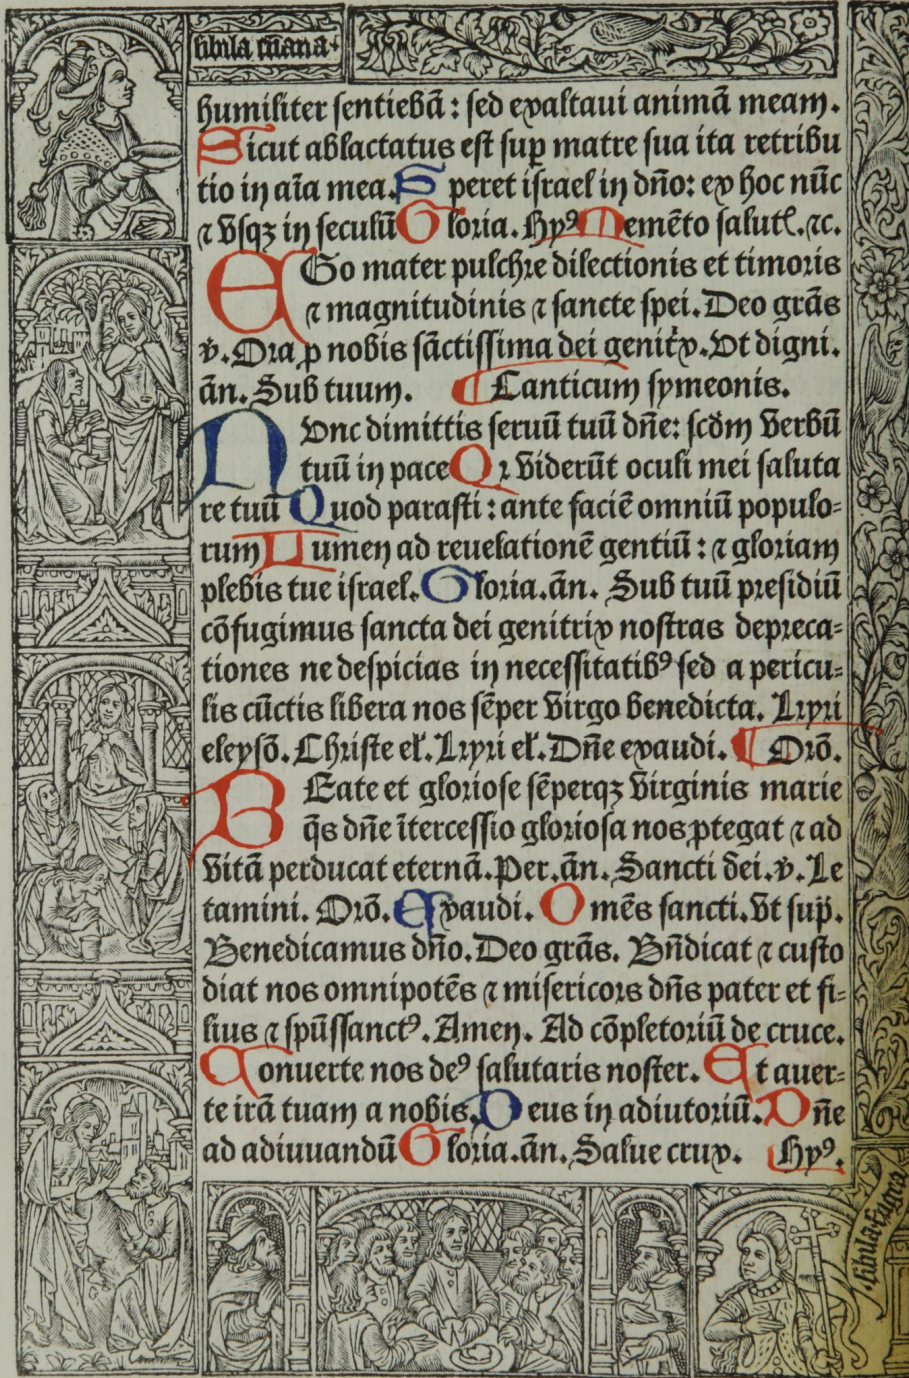 sibila cūana.
humiliter sentiebā: sed exaltaui animā meam.
Sicut ablactatus est sup matre sua ita retribu
tio in aīa mea. Speret israel in dño: ex hoc nūc
⁊ vsqꝫ in seculū Gloria. Hyꝰ Memēto salutꝭ. ⁊c.
EGo mater pulchre dilectionis et timoris
⁊ magnitudinis ⁊ sancte spei. Deo grās
v̄. Ora ꝓ nobis sāctissima dei genitͥx. Vt digni.
ān. Sub tuum. ¶ Canticum symeonis.
NVnc dimittis seruū tuū dñe: scdm verbū
tuū in pace Qꝛ viderūt oculi mei saluta
re tuū Quod parasti: ante faciē omniū populo-
rum Lumen ad reuelationē gentiū: ⁊ gloriam
plebis tue israel. Gloria. ān. Sub tuū presidiū
cōfugimus sancta dei genitrix nostras depreca-
tiones ne despicias in necessitatibꝰ sed a pericu-
lis cūctis libera nos sēper virgo benedicta. Kyri
eleysō. Christe eł. Kyri eł. Dñe exaudi. ¶ Orō.
BEate et gloriose sēperqꝫ virginis marie
q̄s dñe ītercessio gloriosa nos ꝓtegat ⁊ ad
vitā perducat eternā. Per. ān. Sancti dei. v̄. Le
tamini. Orō. Exaudi. Omēs sancti. vt sup̄.
Benedicamus dño. Deo grās. Bñdicat ⁊ custo
diat nos omnipotēs ⁊ misericors dñs pater et fi-
lius ⁊ spūssanctꝰ. Amen. Ad cōpletoriū de cruce.
Conuerte nos deꝰ salutaris noster. Et auer-
te irā tuam a nobis. Deus in adiutoriū. Dñe
ad adiuuandū Gloria. ān. Salue crux. Hyꝰ.
sibila Eugrea